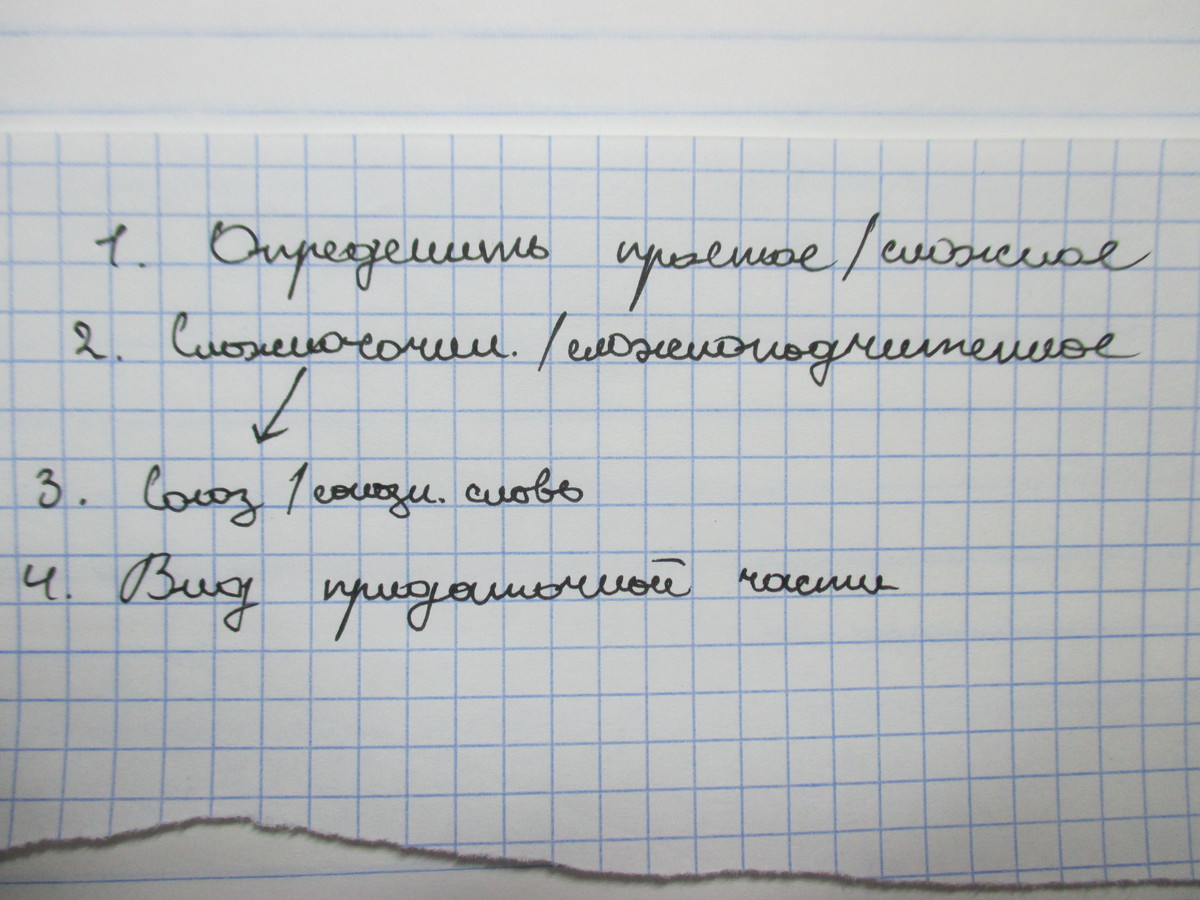 1. Определить простое/сложное
2. Сложносочин./сложноподчиненное
3. Союз/союзн. слово
4. Вид придаточной части